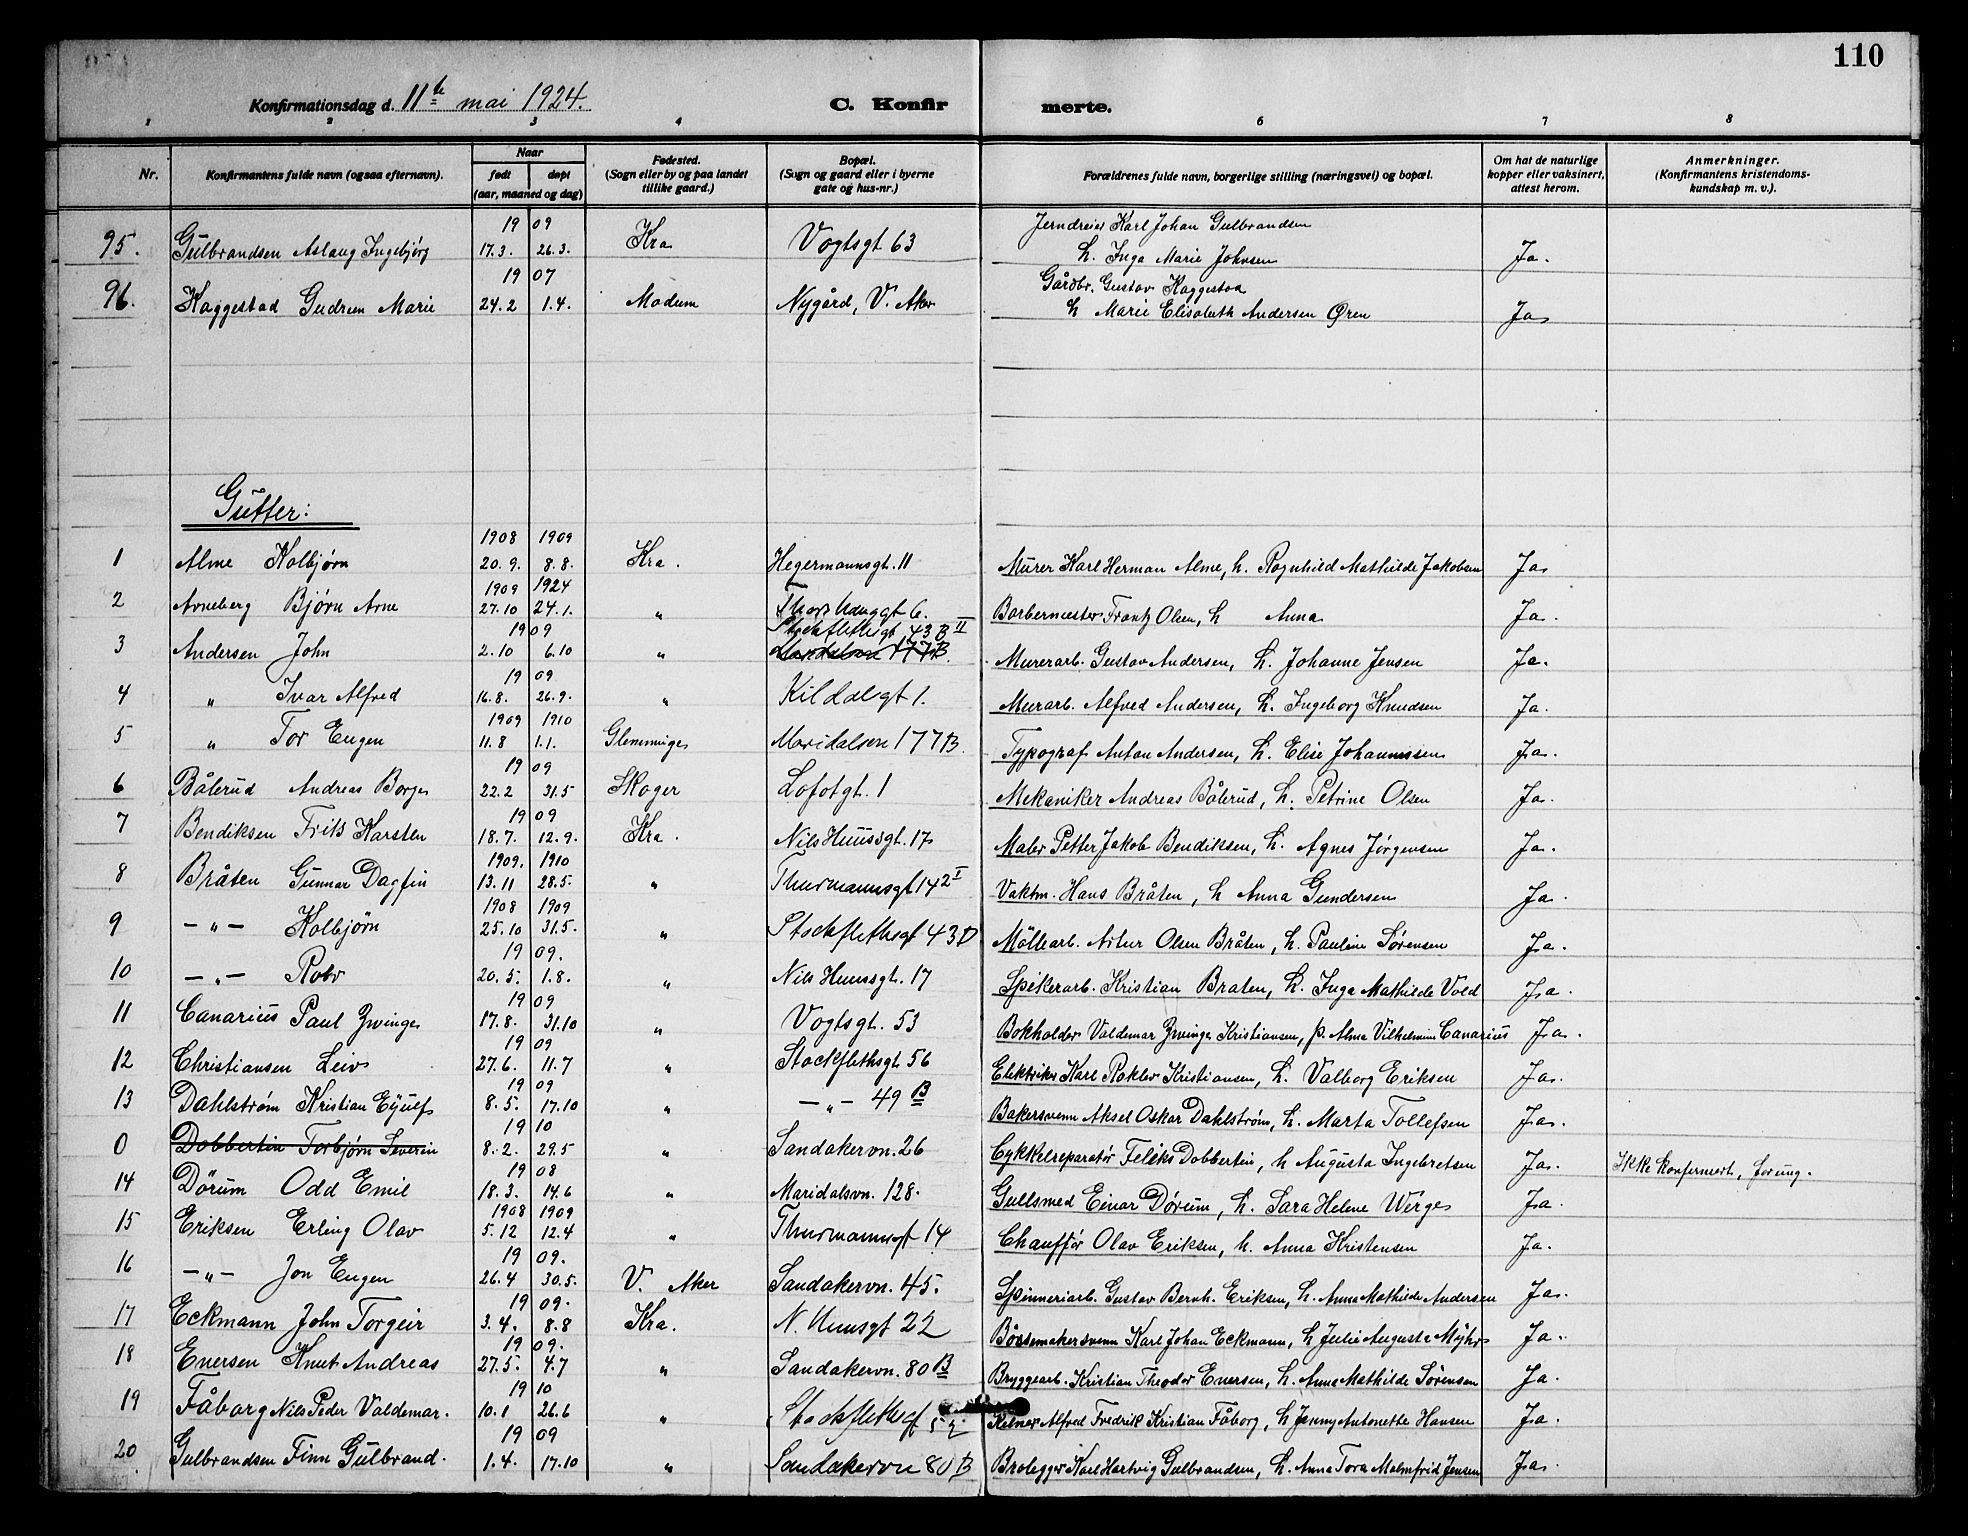 110
Konfirmationsdag d. 11te mai 1924. C. Konfir merte.
1 2 3 4 6 7 8
Nr. Konfirmantens fulde navn (ogsaa efternavn). Naar født døpt (aar, maaned og dag) Fødested. (Sogn eller by og paa landet tillike gaard.) Bopæl. (Sogn og gaard eller i byerne gate og hus-nr.) Forældrenes fulde navn, borgerlige stilling (næringsvei) og bopæl. Om hat de naturlige kopper eller vaksinert, attest herom. Anmerkninger. (Konfirmantens kristendoms-kundskap m. v.).
19 09 Jerndreier Karl Johan Gulbrandsen
95. Gulbrandsen Aslaug Ingebjørg 17.3. 26.3. Kra Vogtsgt 63 h. Inga Marie Johnsen Ja.
19 07 Gårdbr. Gustav Kaggestad
96. Kaggestad Gudrun Marie 24.2 1.4. Modum Nygård, V. Aker h Marie Elisabeth Andersen Øren Ja
Gutter:
1908 1909
1 Alme Kolbjørn 20.9. 8.8. Kra. Hegermannsgt. 11 Murer Karl Herman Alme, h. Ragnhild Mathilde Jakobsen Ja
1909 1924
2 Arneberg Bjørn Arne 27.10 24.1. " Thors haug gt 6. Barbermester Frantz Olsen, h Anna Ja.
19 09 Stockflethsgt 43 B II
3 Andersen John 2.10 6.10 " 177B. Murerarb. Gustav Andersen, h. Johanne Jensen Ja.
19 09
4 " Ivar Alfred 16.8. 26.9. " Kildalgt 1. Murarb. Alfred Andersen, h. Ingeborg Knudsen Ja.
1909 1910
5 " Tor Eugen 11.8 1.1. Glemminge Maridalsvn 177B. Typograf Anton Andersen, h. Elise Johannessen Ja.
19 09
6 Bålerud Andreas Borge 22.2 31.5 Skoger Lofotgt. 1 Mekaniker Andreas Bålerud, h. Petrine Olsen Ja.
19 09
7 Bendiksen Frits Karsten 18.7. 12.9. Kra. Nils Huusgt. 17 Maler Petter Jakob Bendiksen, h. Agnes Jørgensen Ja.
1909. 1910
8 Bråten Gunnar Dagfin 13.11 28.5. " Thurmannsgt 14 2 I Vaktm. Hans Bråten, h Anna Gundersen Ja.
1908 1909
9 —"— Kolbjørn 25.10 31.5. " Stockflethsgt 43 D Møllearb. Artur Olsen Bråten, h. Pauline Sørensen Ja.
19 09.
10 —"— Rolv 20.5. 1.8. " Nils Huusgt. 17 Spikerarb. Kristian Bråten, h. Inga Mathilde Vold Ja.
19 09
11 Canarius Paul Zwinge 17.8. 31.10 " Vogtsgt. 53 Bokholder Valdemar Zwinge Kristiansen, p. Alma Vilhelmine Canarius Ja.
19 09
12 Christiansen Leiv 27.6. 11.7 " Stockflethsgt 56 Elektriker Karl Rokler Kristiansen, h. Valborg Eriksen Ja.
19 09
13 Dahlstrøm Kristian Eyulf 8.5. 17.10 " —"— 49 B Bakersvenn Aksel Oskar Dahlstrøm, h. Marta Tollefsen Ja.
19 10
0 Dobbertin Torbjørn Severin 8.2. 29.5 " Sandakervn. 26 Cykkelreparatør Feliks Dobbertin, h Augusta Ingebretsen Ja. Ikke konfirmert, for ung.
19 08
14 Dørum Odd Emil 18.3. 14.6 " Maridalsvn. 128. Gullsmed Einar Dørum, h. Sara Helene Wirge Ja.
1908 1909
15 Eriksen Erling Olav 5.12 12.4 " Thurmannsgt 14 Chauffør Olav Eriksen, h. Anna Kristensen Ja.
19 09.
16 —"— Jon Eugen 26.4 30.5. V. Aker Sandakervn. 45. Spinneriarb. Gustav Bernh. Eriksen, h. Anna Mathilde Andersen Ja.
19 09.
17 Eckmann John Torgeir 3.4. 8.8 Kra. N. Huusgt 22 Børsemakersvenn Karl Johan Eckmann, h Julie Augusta Myhre Ja.
19 09.
18 Enersen Knut Andreas 27.5. 4.7 " Sandakervn. 80 B Bryggearb. Kristian Theodor Enersen, h. Anna Mathilde Sørensen Ja.
19 10
19 Fåborg Nils Peder Valdemar. 10.1 26.6 " Stockflethsgt 52 Kelner Alfred Fredrik Kristian Fåborg, h Jenny Antonette Hansen Ja.
19 09
20 Gulbrandsen Finn Gulbrand. 1.4. 17.10 " Sandakervn 80 B Brolegger Karl Hartvig Gulbrandsen, h. Anna Tora Malmfrid Jensen Ja.